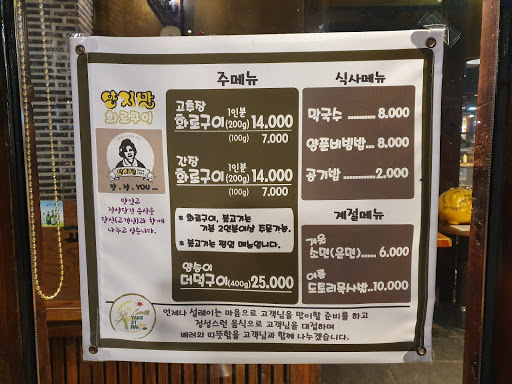 양지말
화로구이
양.지.YOU
맛있고
정성담긴 음식을
당신(고객님)과 함께
나누고 싶습니다.
주메뉴
고추장 1인분
화로구이(200g) 14.000
(100g) 7.000
간장 1인분
화로구이(200g) 14.000
(100g) 7.000
* 화로구이, 불고기는
기본 2인분이상 주문가능.
* 불고기는 평일 메뉴입니다.
양송이
더덕구이(400g) 25.000
식사메뉴
막국수 ........... 8.000
양푼비빔밥... 8.000
공기밥 ........... 2.000
계절메뉴
겨울
소면(온면)...... 6.000
여름
도토리묵사발..10.000
YANG
JI
MAL
언제나 설레이는 마음으로 고객님을 맞이할 준비를 하고
정성스런 음식으로 고객님을 대접하며
배려와 따뜻함을 고객님과 함께 나누겠습니다.